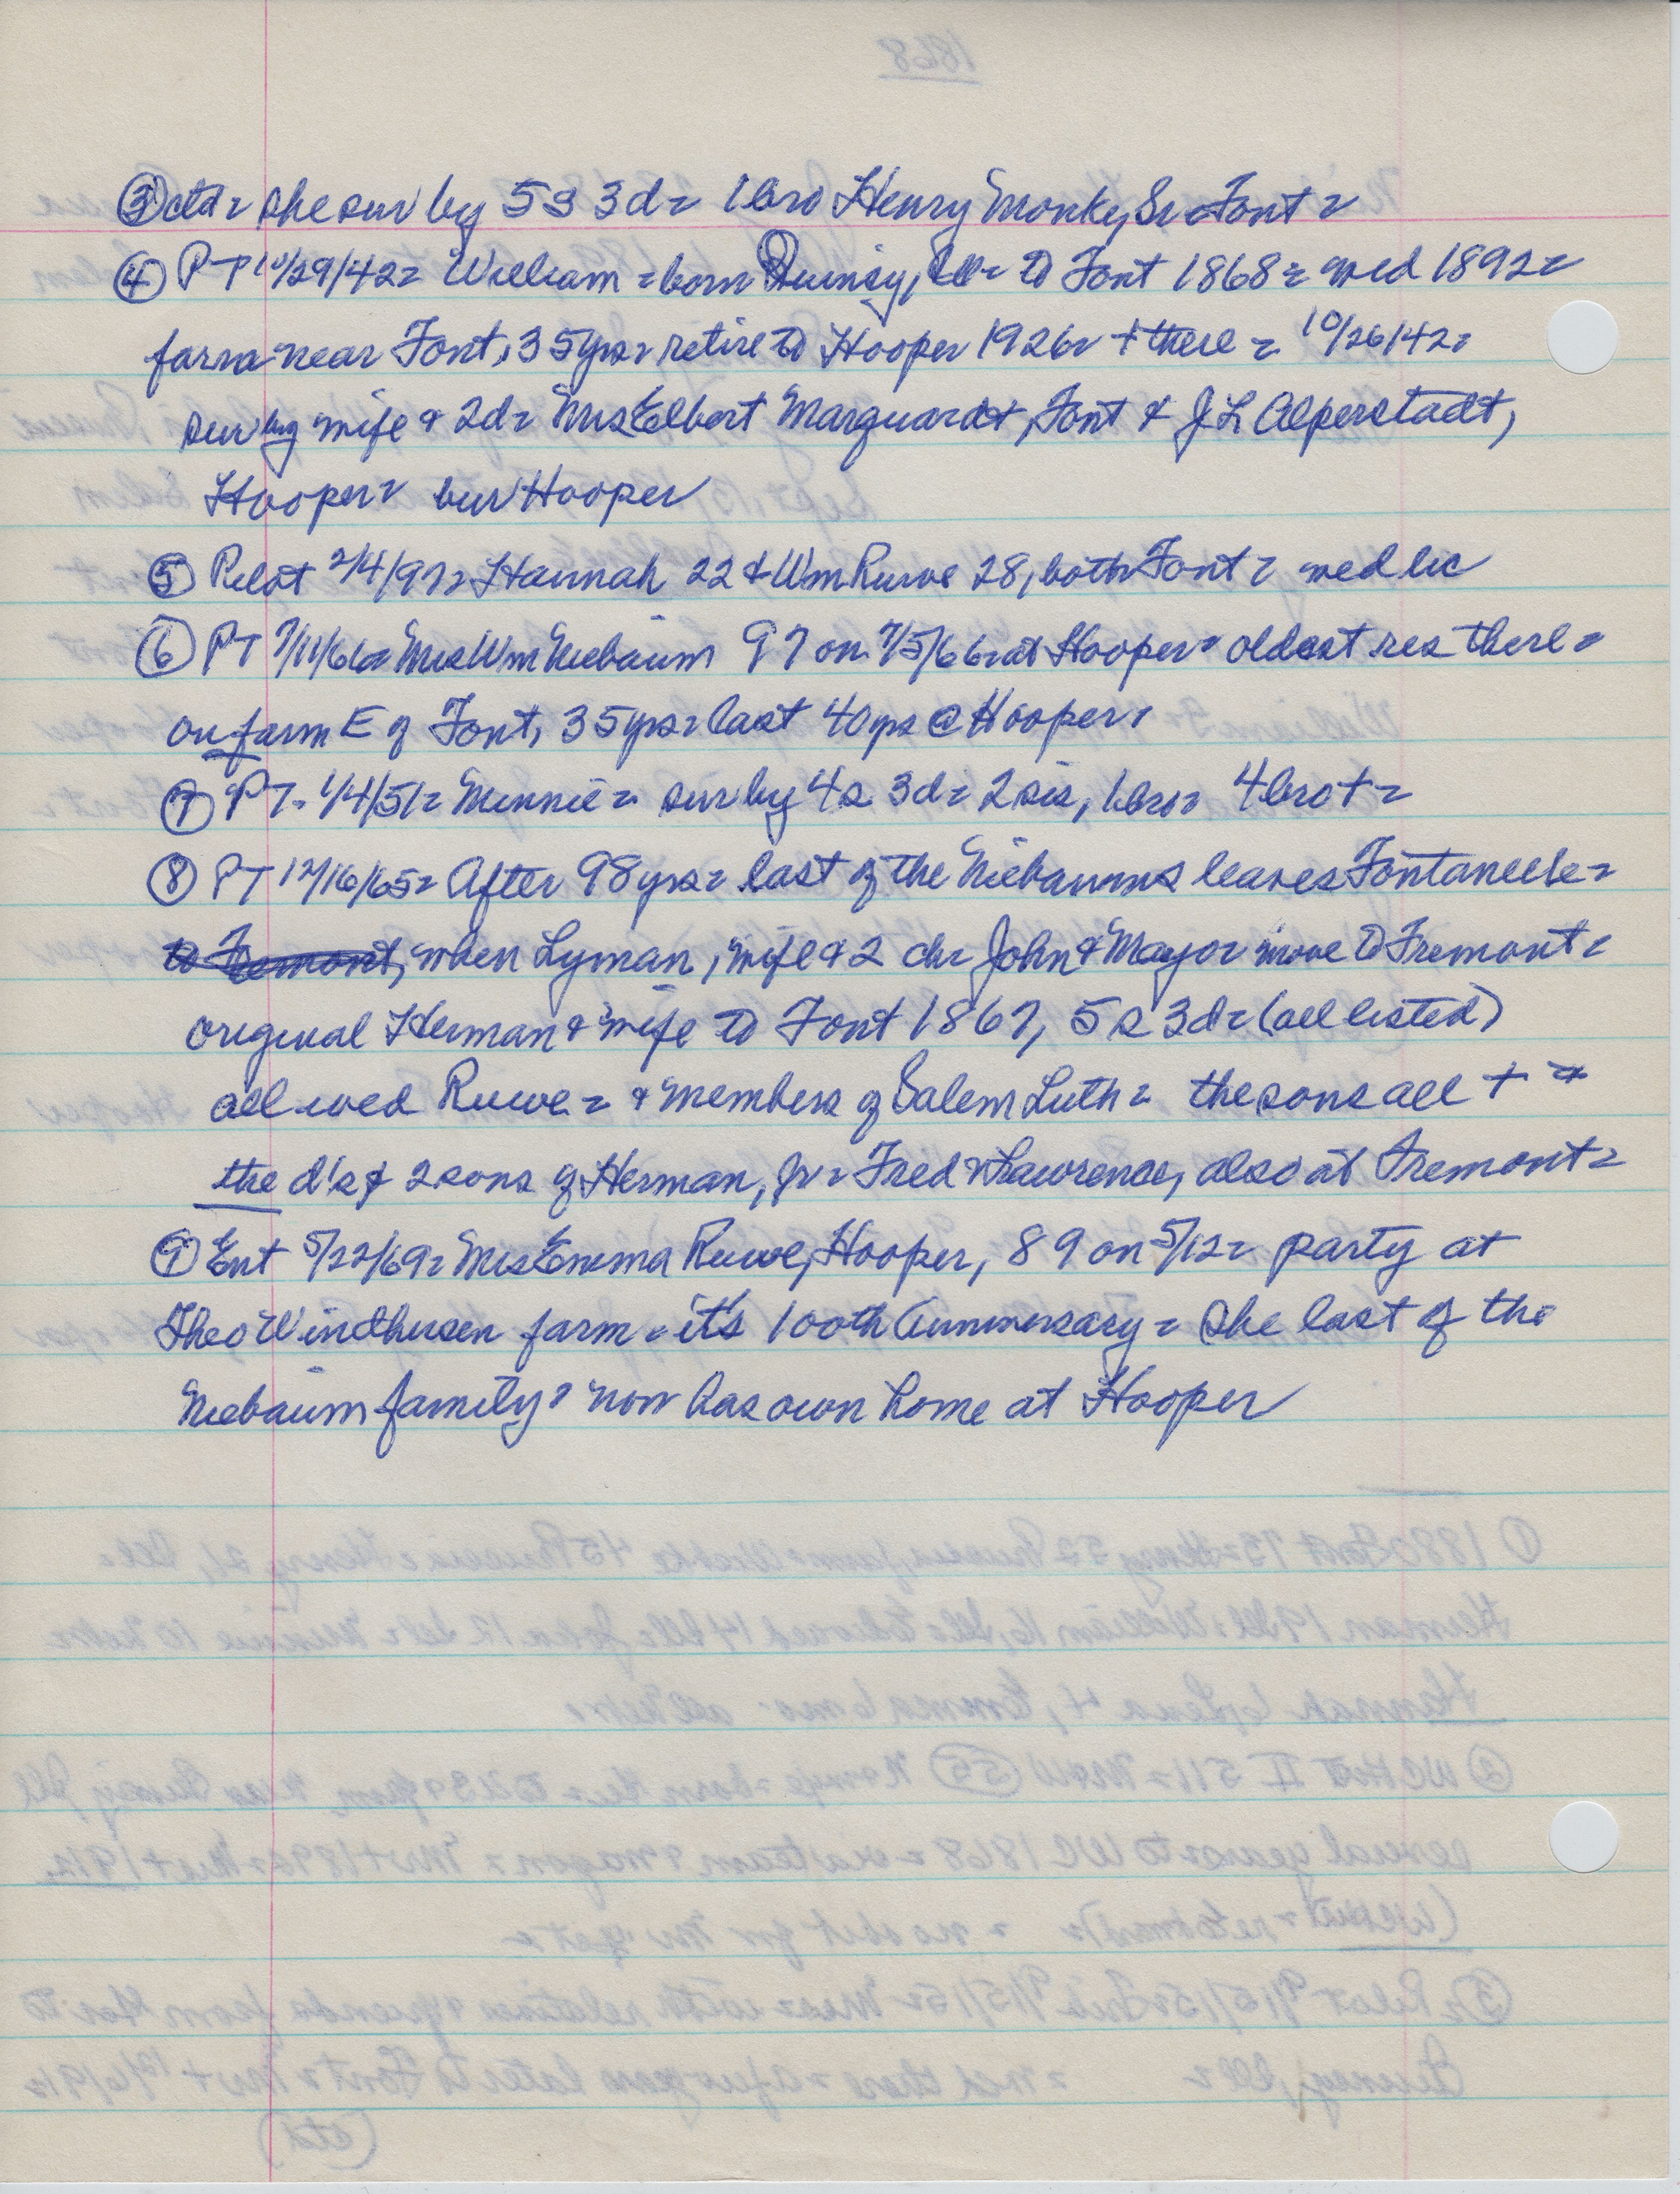 ③ ctd = she sur by 5 s 3 d = 1 bro Henry Monke, Sr = Font =
④ PT 10/29/42 = William = born Quincy, Ill = to Font 1868 = wed 1892 =
farm near Font, 35 yrs = retire to Hooper 1926 = + there = 10/26/42 =
sur by wife & 2 d = Mrs Elbert Marquardt, Font & J L Alperstadt,
Hooper = bur Hooper
⑤ Pilot 2/4/97 = Hannah 22 & Wm Ruwe 28, both Font = wed lic
⑥ PT 7/11/66 = Mrs Wm Niebaum 97 on 7/5/66 = at Hooper = oldest res there =
on farm E of Font, 35 yrs = last 40 yrs @ Hooper =
⑦ PT = 1/4/51 = Minnie = sur by 4 s 3 d = 2 sis, 1 bro = 4 bro + =
⑧ PT 12/16/65 = After 98 yrs = last of the Niebaums leaves Fontanelle =
to Fremont, when Lyman, wife & 2 ch = John & Mayo = move to Fremont =
original Herman & wife to Font 1867, 5 s 3 d = (all listed)
all wed Ruwe = & members of Salem Luth = the sons all + =
the d's & 2 sons of Herman, Jr = Fred & Lawrence, also at Fremont =
⑨ Ent 5/22/69 = Mrs Emma Ruwe, Hooper, 89 on 5/12 = party at
Theo Windhusen farm = it's 100th Anniversary = She last of the
Niebaum family = now has own home at Hooper